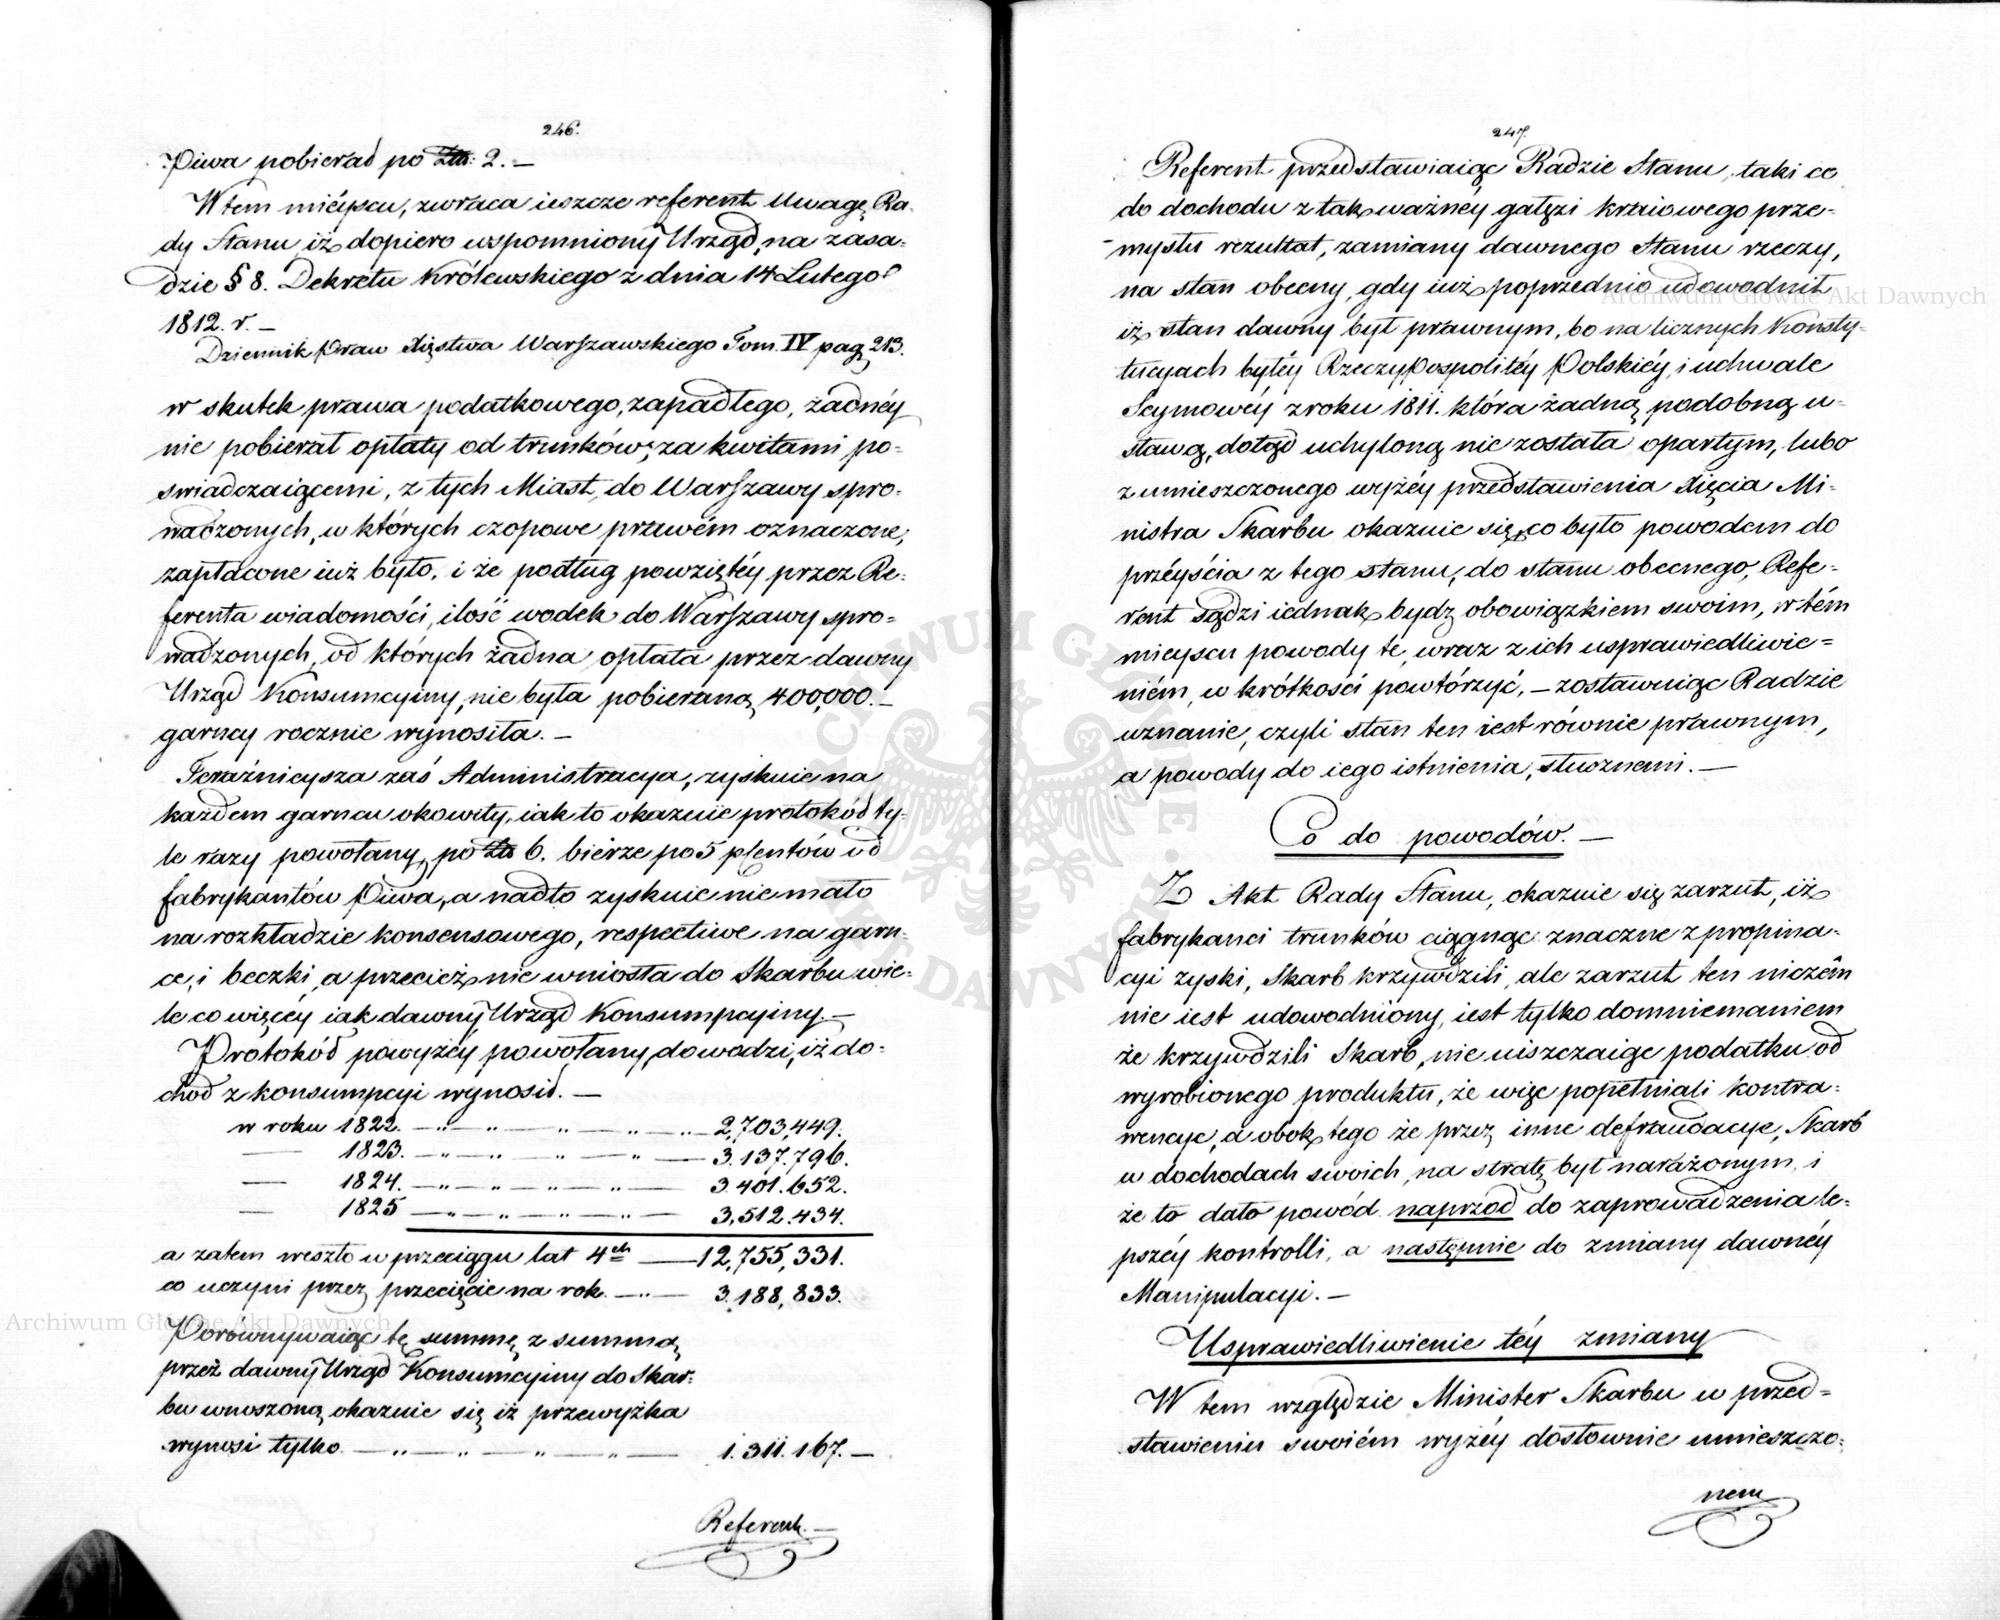 246.
Piwa pobierał po Złł: 2. —
W tem mieyscu, zwraca ieszcze referent Uwagę Ra-
dy Stanu iż dopiero wspomniony Urząd, na zasa-
dzie § 8. Dekretu Królewskiego z dnia 14 Lutego
1812. r. —
Dziennik Praw Xięstwa Warszawskiego Tom. IV pag. 213.
w skutek prawa podatkowego, zapadłego, żadnéy
nie pobierał opłaty od trunków, za kwitami po-
swiadczaiącemi, z tych Miast, do Warszawy spro-
wadzonych, w których czopowe prawém oznaczone,
zapłacone iuż było. i że podług powziętéy przez Re-
ferenta wiadomości, ilość wodek do Warszawy spro-
wadzonych, od których żadna opłata przez dawny
Urząd Konsumcyiny, nie była pobieraną, 400,000. —
garncy rocznie wynosiła. —
Teraźnieysza zaś Administracya, zyskuie na
każdem garncu okowity, iak to okazuie protokół ty-
le razy powołany, po Złł 6. bierze po 5 procentów od
fabrykantów Piwa, a nadto zyskuie nie mało
na rozkładzie konsensowego, respective na garn-
ce, i beczki, a przecież nie wniosła do Skarbu wie-
le co więcéy iak dawny Urząd Konsumpcyiny. —
Protokół powyżéy powołany, dowodzi, iż do-
chod z konsumpcyi wynosił. —
w roku 1822. — „ — „ — „ — „ — 2,703,449.
— 1823. — „ — „ — „ — „ — 3.137.796.
— 1824. — „ — „ — „ — „ — 3.401.652.
— 1825 — „ — „ — „ — „ — 3,512.434.
a zatem weszło w przeciągu lat 4ch — 12,755,331.
co uczyni przez przecięcie na rok. — „ — 3.188,833.
Porównywaiąc tę summę z summą
przez dawny Urząd Konsumcyiny do Skar-
bu wnoszoną, okazuie się iż przewyżka
wynosi tylko — „ — „ — „ — „ — 1.311.167. —
Referent. —
247.
Referent przedstawiaiąc Radzie Stanu, taki co
do dochodu z tak ważnéy gałęzi kraiowego prze-
mysłu rezultat, zamiany dawnego Stanu rzeczy,
na stan obecny, gdy iuż poprzednio udowodnił
iż stan dawny był prawnym, bo na licznych Konsty-
tucyach byłéy Rzeczypospolitéy Polskiéy, i uchwale
Seymowéy z roku 1811. która żadną podobną u-
stawą, dotąd uchyloną nie została opartym, lubo
z umieszczonego wyżéy przedstawienia Xięcia Mi-
nistra Skarbu okazuie się, co było powodem do
przéyścia z tego stanu, do stanu obecnego, Refe-
rent sądzi iednak bydz obowiązkiem swoim, w tém
mieyscu powody te, wraz z ich usprawiedliwie-
niém, w krótkości powtórzyć, — zostawuiąc Radzie
uznanie, czyli stan ten iest równie prawnym,
a powody do iego istnienia, słusznemi. —
Co do powodów. —
Z Akt Rady Stanu, okazuie się zarzut, iż
fabrykanci trunków ciągnąc znaczne z propina-
cyi zyski, Skarb krzywdzili, ale zarzut ten niczém
nie iest udowodniony, iest tylko domniemaniem
że krzywdzili Skarb, nie uiszczaiąc podatku od
wyrobionego produktu, że więc popełniali kontra-
wencye, a obok tego że przez inne defraudacye, Skarb
w dochodach swoich, na stratę był narażonym, i
że to dało powód naprzód do zaprowadzenia le-
pszéy kontrolli, a następnie do zmiany dawnéy
Manipulacyi. —
Usprawiedliwienie téy zmiany
W tem względzie Minister Skarbu w przed-
stawieniu swoiém wyżéy dosłownie umieszczo-
nem
Archiwum Główne Akt Dawnych
Archiwum Główne Akt Dawnych
ARCHIWUM GŁÓWNE AKT DAWNYCH